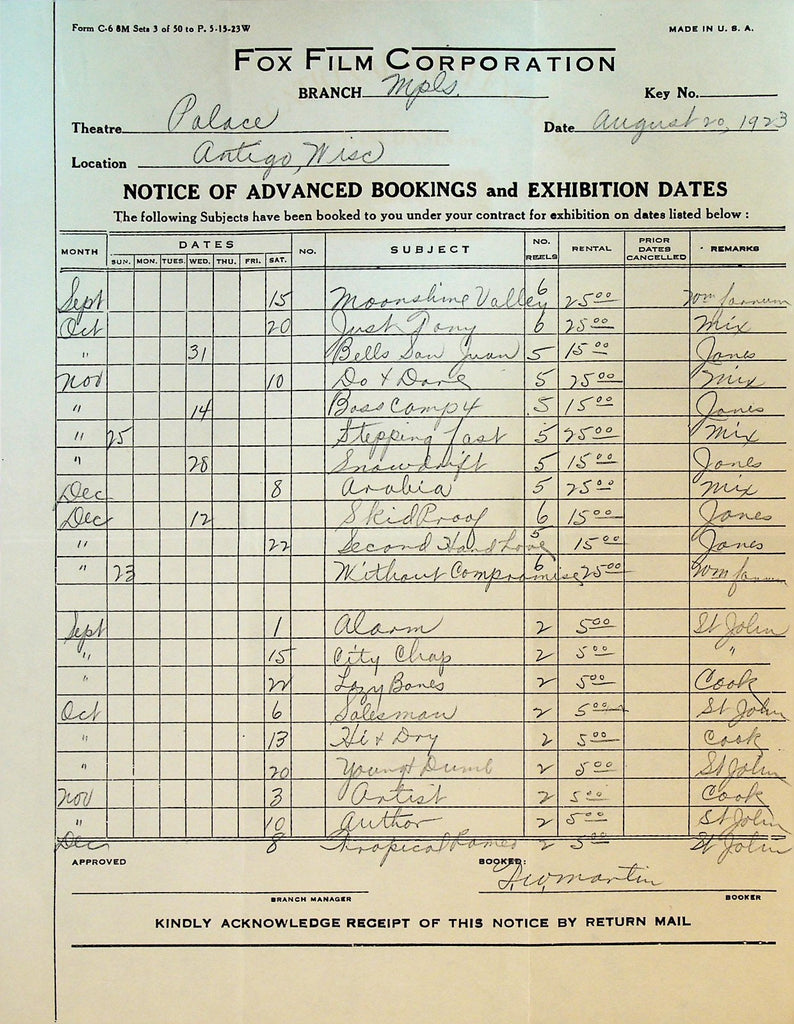 Form C-6 8M Sets 3 of 50 to P. 5-15-23W MADE IN U. S. A.
FOX FILM CORPORATION
BRANCH Mpls. Key No.
Theatre Palace Date August 20, 1923
Location Antigo, Wisc
NOTICE OF ADVANCED BOOKINGS and EXHIBITION DATES
The following Subjects have been booked to you under your contract for exhibition on dates listed below :
MONTH DATES NO. SUBJECT NO. REELS RENTAL PRIOR DATES CANCELLED REMARKS
SUN. MON. TUES. WED. THU. FRI. SAT.
Sept 15 Moonshine Valley 6 25 00 Wm farnum
Oct 20 Just Tony 6 25 00 Mix
" 31 Bells San Juan 5 15 00 Jones
Nov 10 Do & Dare 5 25 00 Mix
" 14 Boss Camp 4 5 15 00 Jones
" 25 Stepping fast 5 25 00 Mix
" 28 Snowdrift 5 15 00 Jones
Dec 8 Arabia 5 25 00 Mix
Dec 12 Skid Proof 6 15 00 Jones
" 22 Second Hand Love 5 15 00 Jones
" 23 Without Compromise 6 25 00 Wm farnum
Sept 1 Alarm 2 5 00 St John
" 15 City Chap 2 5 00 "
" 22 Lazy Bones 2 5 00 Cook
Oct 6 Salesman 2 5 00 St John
" 13 Hi & Dry 2 5 00 Cook
" 20 Young & Dumb 2 5 00 St John
Nov 3 Artist 2 5 00 Cook
" 10 Author 2 5 00 St John
Dec 8 Tropical Romeo 2 5 00 St John
APPROVED BOOKED:
martin
BRANCH MANAGER BOOKER
KINDLY ACKNOWLEDGE RECEIPT OF THIS NOTICE BY RETURN MAIL